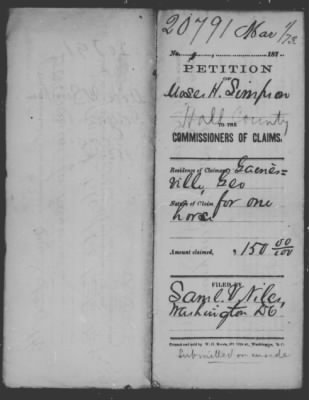 20791 Mar 1/73
No. 187
PETITION
OF
Moses H. Simpson
Hall County
TO THE
COMMISSIONERS OF CLAIMS.
Residence of Claimant, Gaines=
ville, Geo
Nature of Claim for one
horse
Amount claimed, $150 00/100
FILED BY
Saml. V. Niles,
Washington DC
Submitted on inside